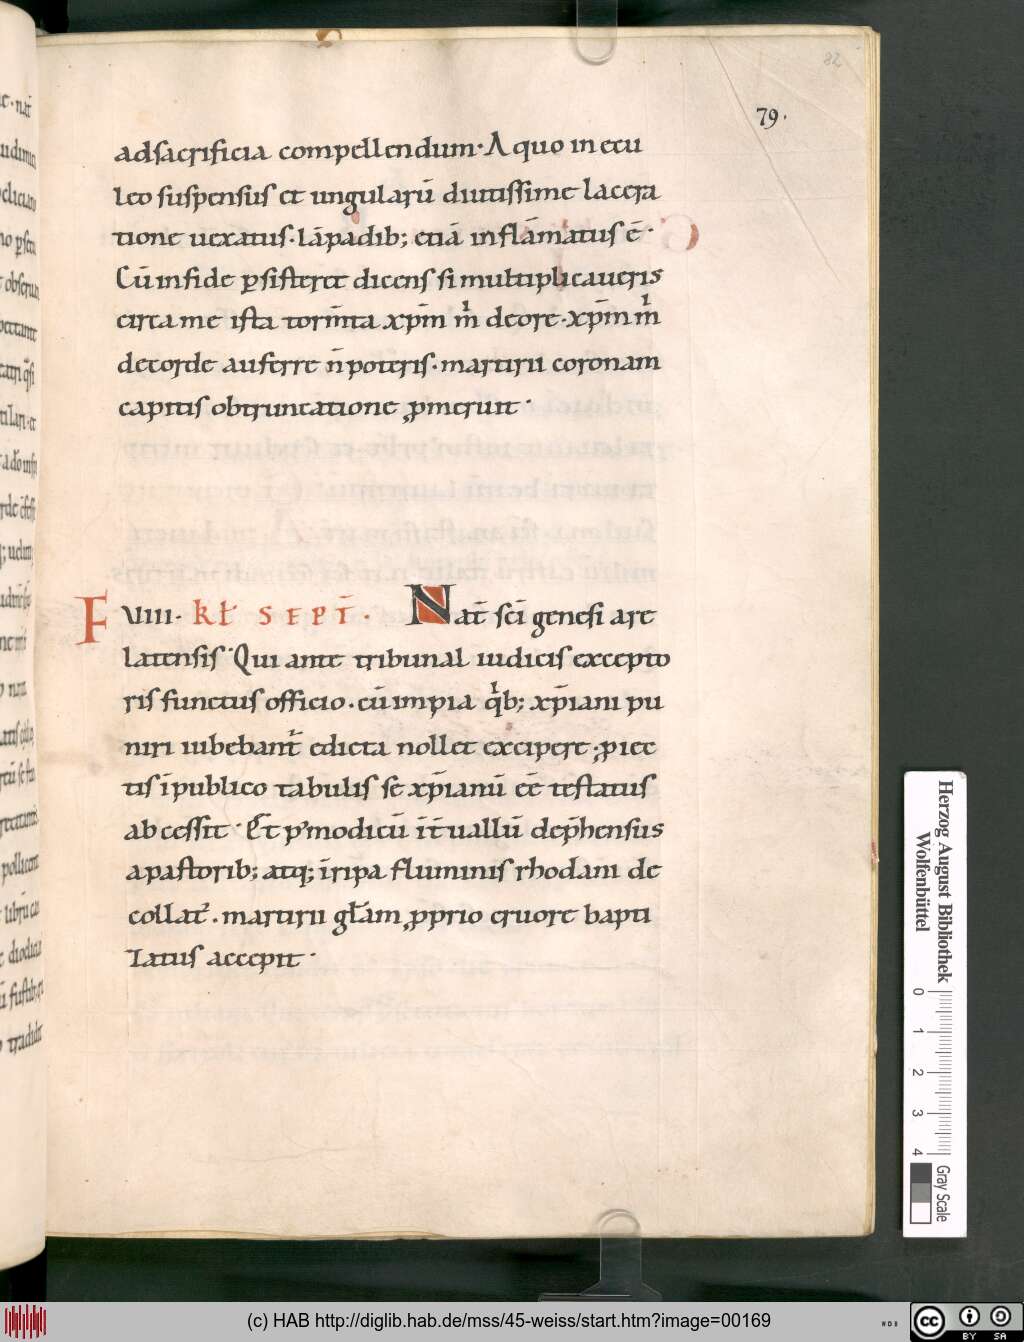 82
79.
adsacrificia compellendum· A quo in ecu
leo suspensus et ungularū diutissime lacera
tione uexatus· lāpadib; etiā inflāmatus ē·
Cū in fide psisteret dicens si multiplicaueris
circa me ista torm̄ta xp̄m m̄ de ore· xp̄m m̄
de corde auferre n̄ poteris· martirii coronam
capitis obtruncatione pmeruit·
F VIIII· kł SEPT̄· Nat̄ sc̄i genesi are
latensis· Qui ante tribunal iudicis excepto
ris functus officio· cū impia qb; xp̄iani pu
niri iubebant̄ edicta nollet excipere· piec
tis ī publico tabulis se xp̄ianū eē testatus
abcessit· Et p modicū īt̄uallū dep̄hensus
a pastorib; atq; ī ripa fluminis rhodani de
collat̄· martirii gl̄am pprio cruore bapti
zatus accepit·
Herzog August Bibliothek
Wolfenbüttel
0 1 2 3 4
Gray Scale
(c) HAB http://diglib.hab.de/mss/45-weiss/start.htm?image=00169
cc BY SA